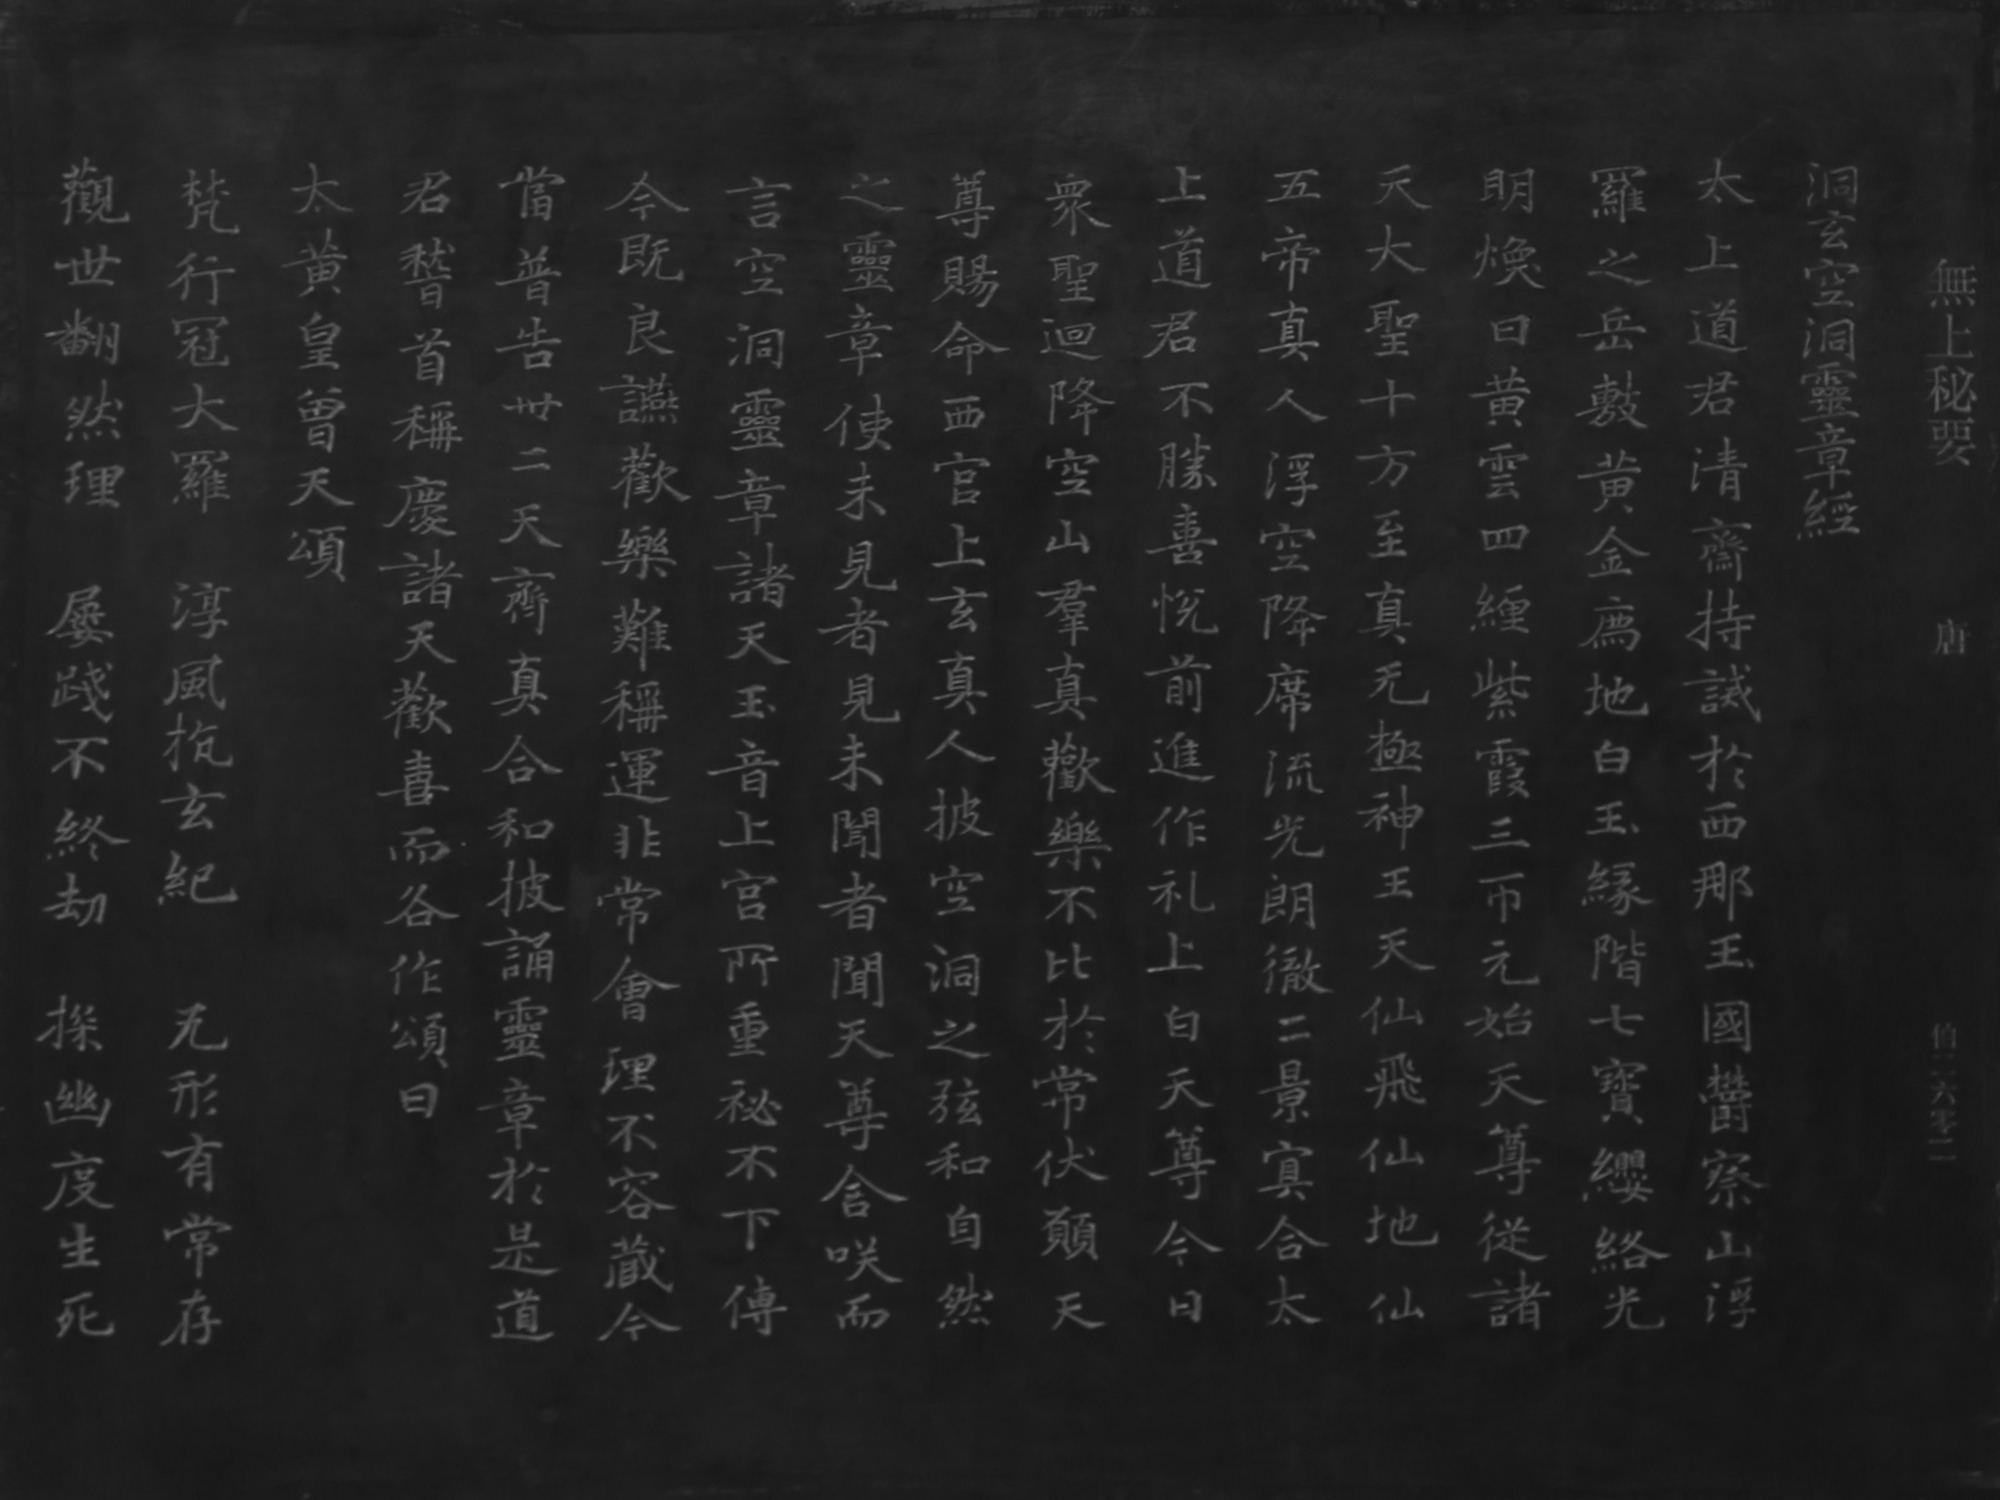 無上秘要 唐 伯二六零二
洞玄空洞靈章經
太上道君清齋持誡於西那玉國欝察山浮
羅之岳敷黄金爲地白玉緣階七寶纓絡光
明煥日黄雲四纏紫霞三帀元始天尊從諸
天大聖十方至真无極神王天仙飛仙地仙
五帝真人浮空降席流光朗徹二景寘合太
上道君不勝喜悅前進作礼上白天尊今日
衆聖迴降空山羣真歡樂不比於常伏願天
尊賜命西官上玄真人披空洞之弦和自然
之靈章使未見者見未聞者聞天尊含咲而
言空洞靈章諸天玉音上宫所重祕不下傳
今既良讌歡樂難稱運非常會理不容蔵今
當普告卅二天齊真合和披誦靈章於是道
君稽首稱慶諸天歡喜而各作頌曰
太黄皇曾天頌
梵行冠大羅 淳風抗玄紀 无形有常存
觀世翻然理 屡踐不終劫 探幽度生死